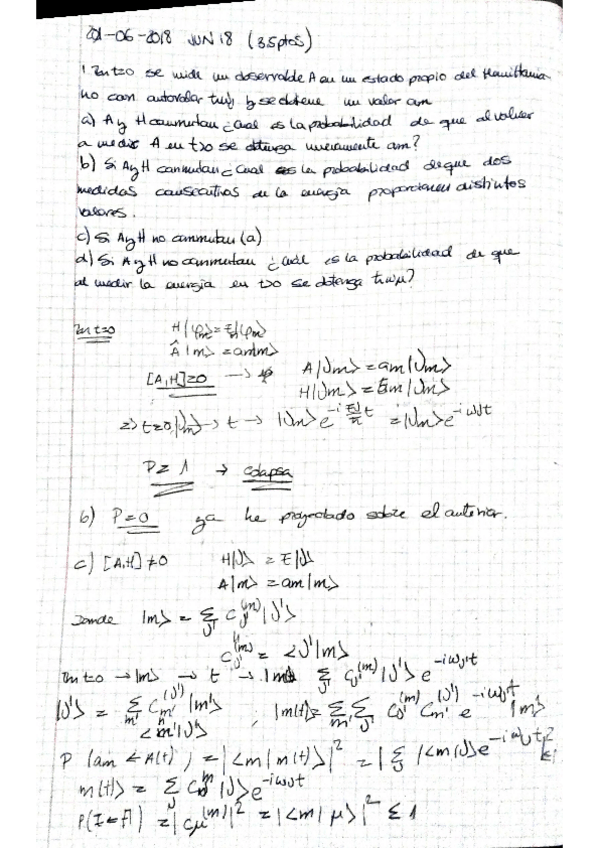 21-06-2018 JUN 18 (3.5ptos)
1. En t=0 se mide un observable A en un estado propio del Hamiltonia-
no con autovalor ħωj y se obtiene un valor am
a) A y H conmutan ¿Cuál es la probabilidad de que al volver
a medir A en t>0 se obtenga nuevamente am?
b) Si A y H conmutan ¿Cuál es la probabilidad de que dos
medidas consecutivas de la energía proporcionen distintos
valores.
c) Si A y H no conmutan (a)
d) Si A y H no conmutan ¿Cuál es la probabilidad de que
al medir la energía en t>0 se obtenga ħωμ?
En t=0 H|φm> = En|φm>
Â|m> = am|m>
[A,H]=0 → A|Jm> = am|Jm>
H|Jm> = Em|Jm>
=> t=0 |Jm> → t → |Jm> e^{-i EJ/ħ t} = |Jm> e^{-iωJt}
P = 1 → colapsa
b) P=0 ya he proyectado sobre el anterior.
c) [A,H]≠0 H|J> = E|J>
A|m> = am|m>
Donde |m> = Σ_{J'} C_{J'}^{(m)} |J'>
C_{J'}^{(m)} = <J'|m>
En t=0 → |m> → t → Σ_{J'} C_{J'}^{(m)} |J'> e^{-iωJ't}
|J'> = Σ_{m'} C_{m'}^{(J')} |m'> ; |m(t)> = Σ_{m'} Σ_{J'} C_{J'}^{(m)} C_{m'}^{(J')} e^{-iωJ't} |m'>
<m'|J'>
P (am ← A(t)) = |<m|m(t)>|² = |Σ_J |<m|J>| e^{-iωJt}|²
m(t)> = Σ_J C_J^m |J> e^{-iωJt}
= |Cμ^{(m)}|² = |<m|μ>|² ≤ 1